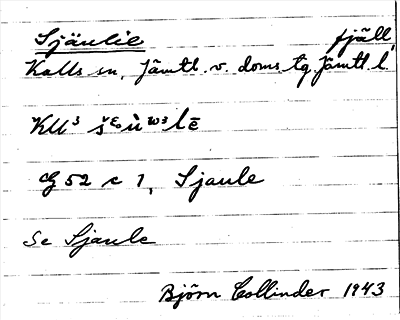 Sjäulie fjäll
Kalls sn, Jämtl. v. doms. tg, Jämtl. l.
Kll³
G 52 c 1, Sjaule
Se Sjaule
Björn Collinder 1943